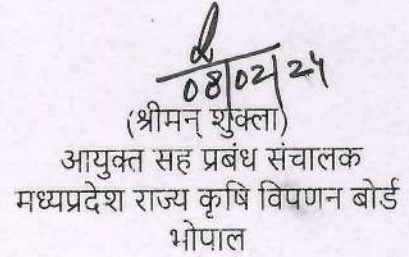 08/02/24
(श्रीमन् शुक्ला)
आयुक्त सह प्रबंध संचालक
मध्यप्रदेश राज्य कृषि विपणन बोर्ड
भोपाल